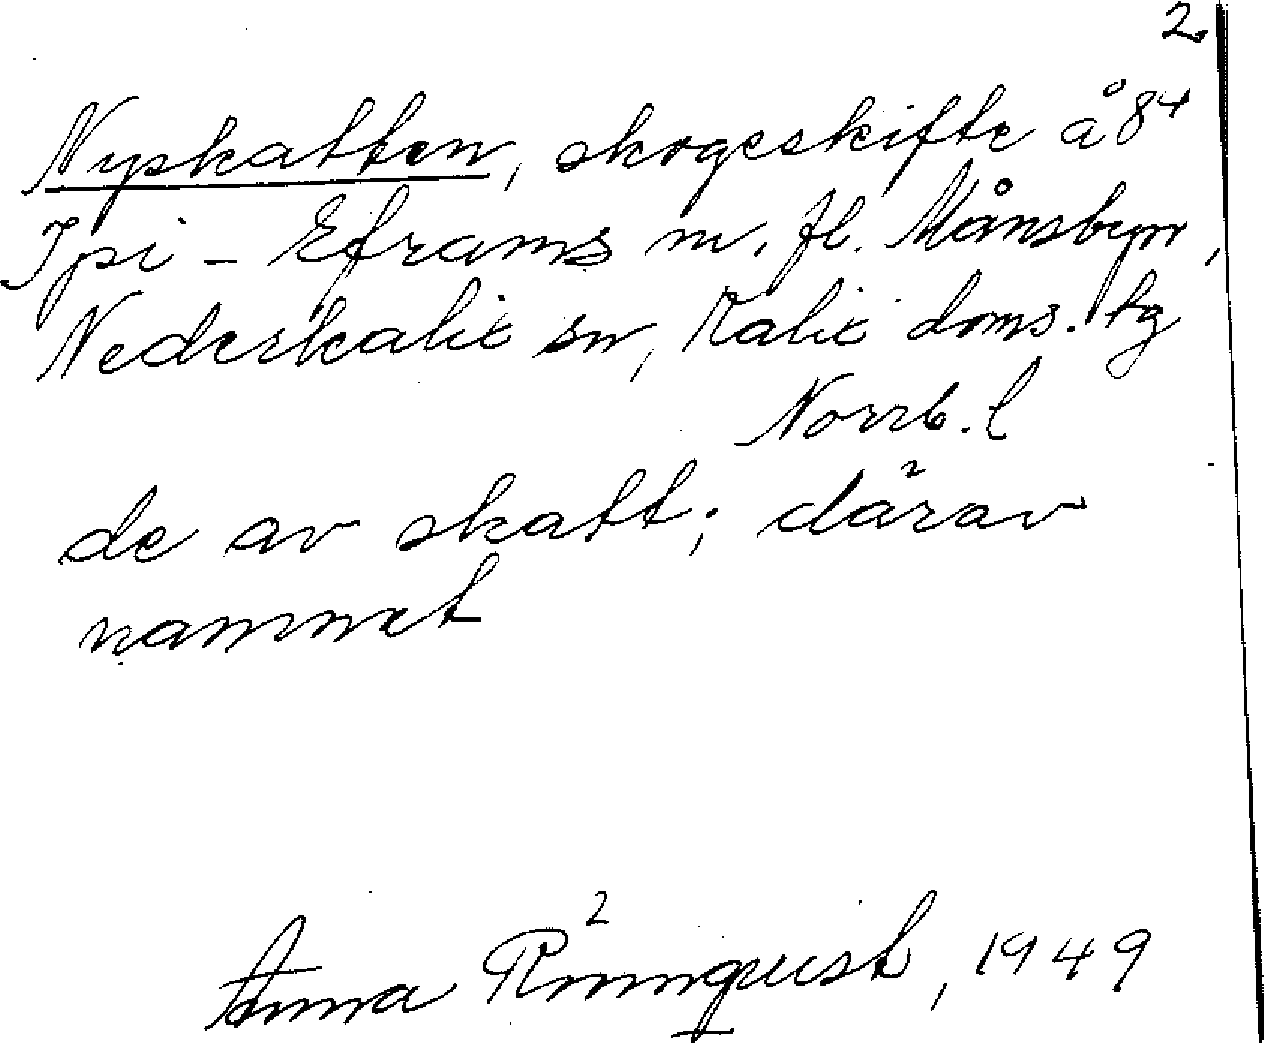 2
Nyskatten, skogsskifte å 84
Ipi - Eframs m. fl. Månsbyn,
Nederkalix sn, Kalix doms. tg
Norrb. l
de av skatt; därav
namnet
Anna Rönnquist, 1949